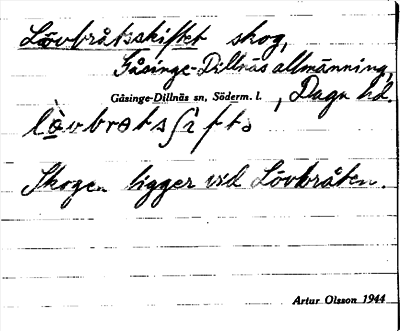 Lövbråtsskiftet skog,
Gåsinge-Dillnäs allmänning,
Gåsinge-Dillnäs sn, Söderm. l. , Daga hd.
Skogen ligger vid Lövbråten.
Artur Olsson 1944